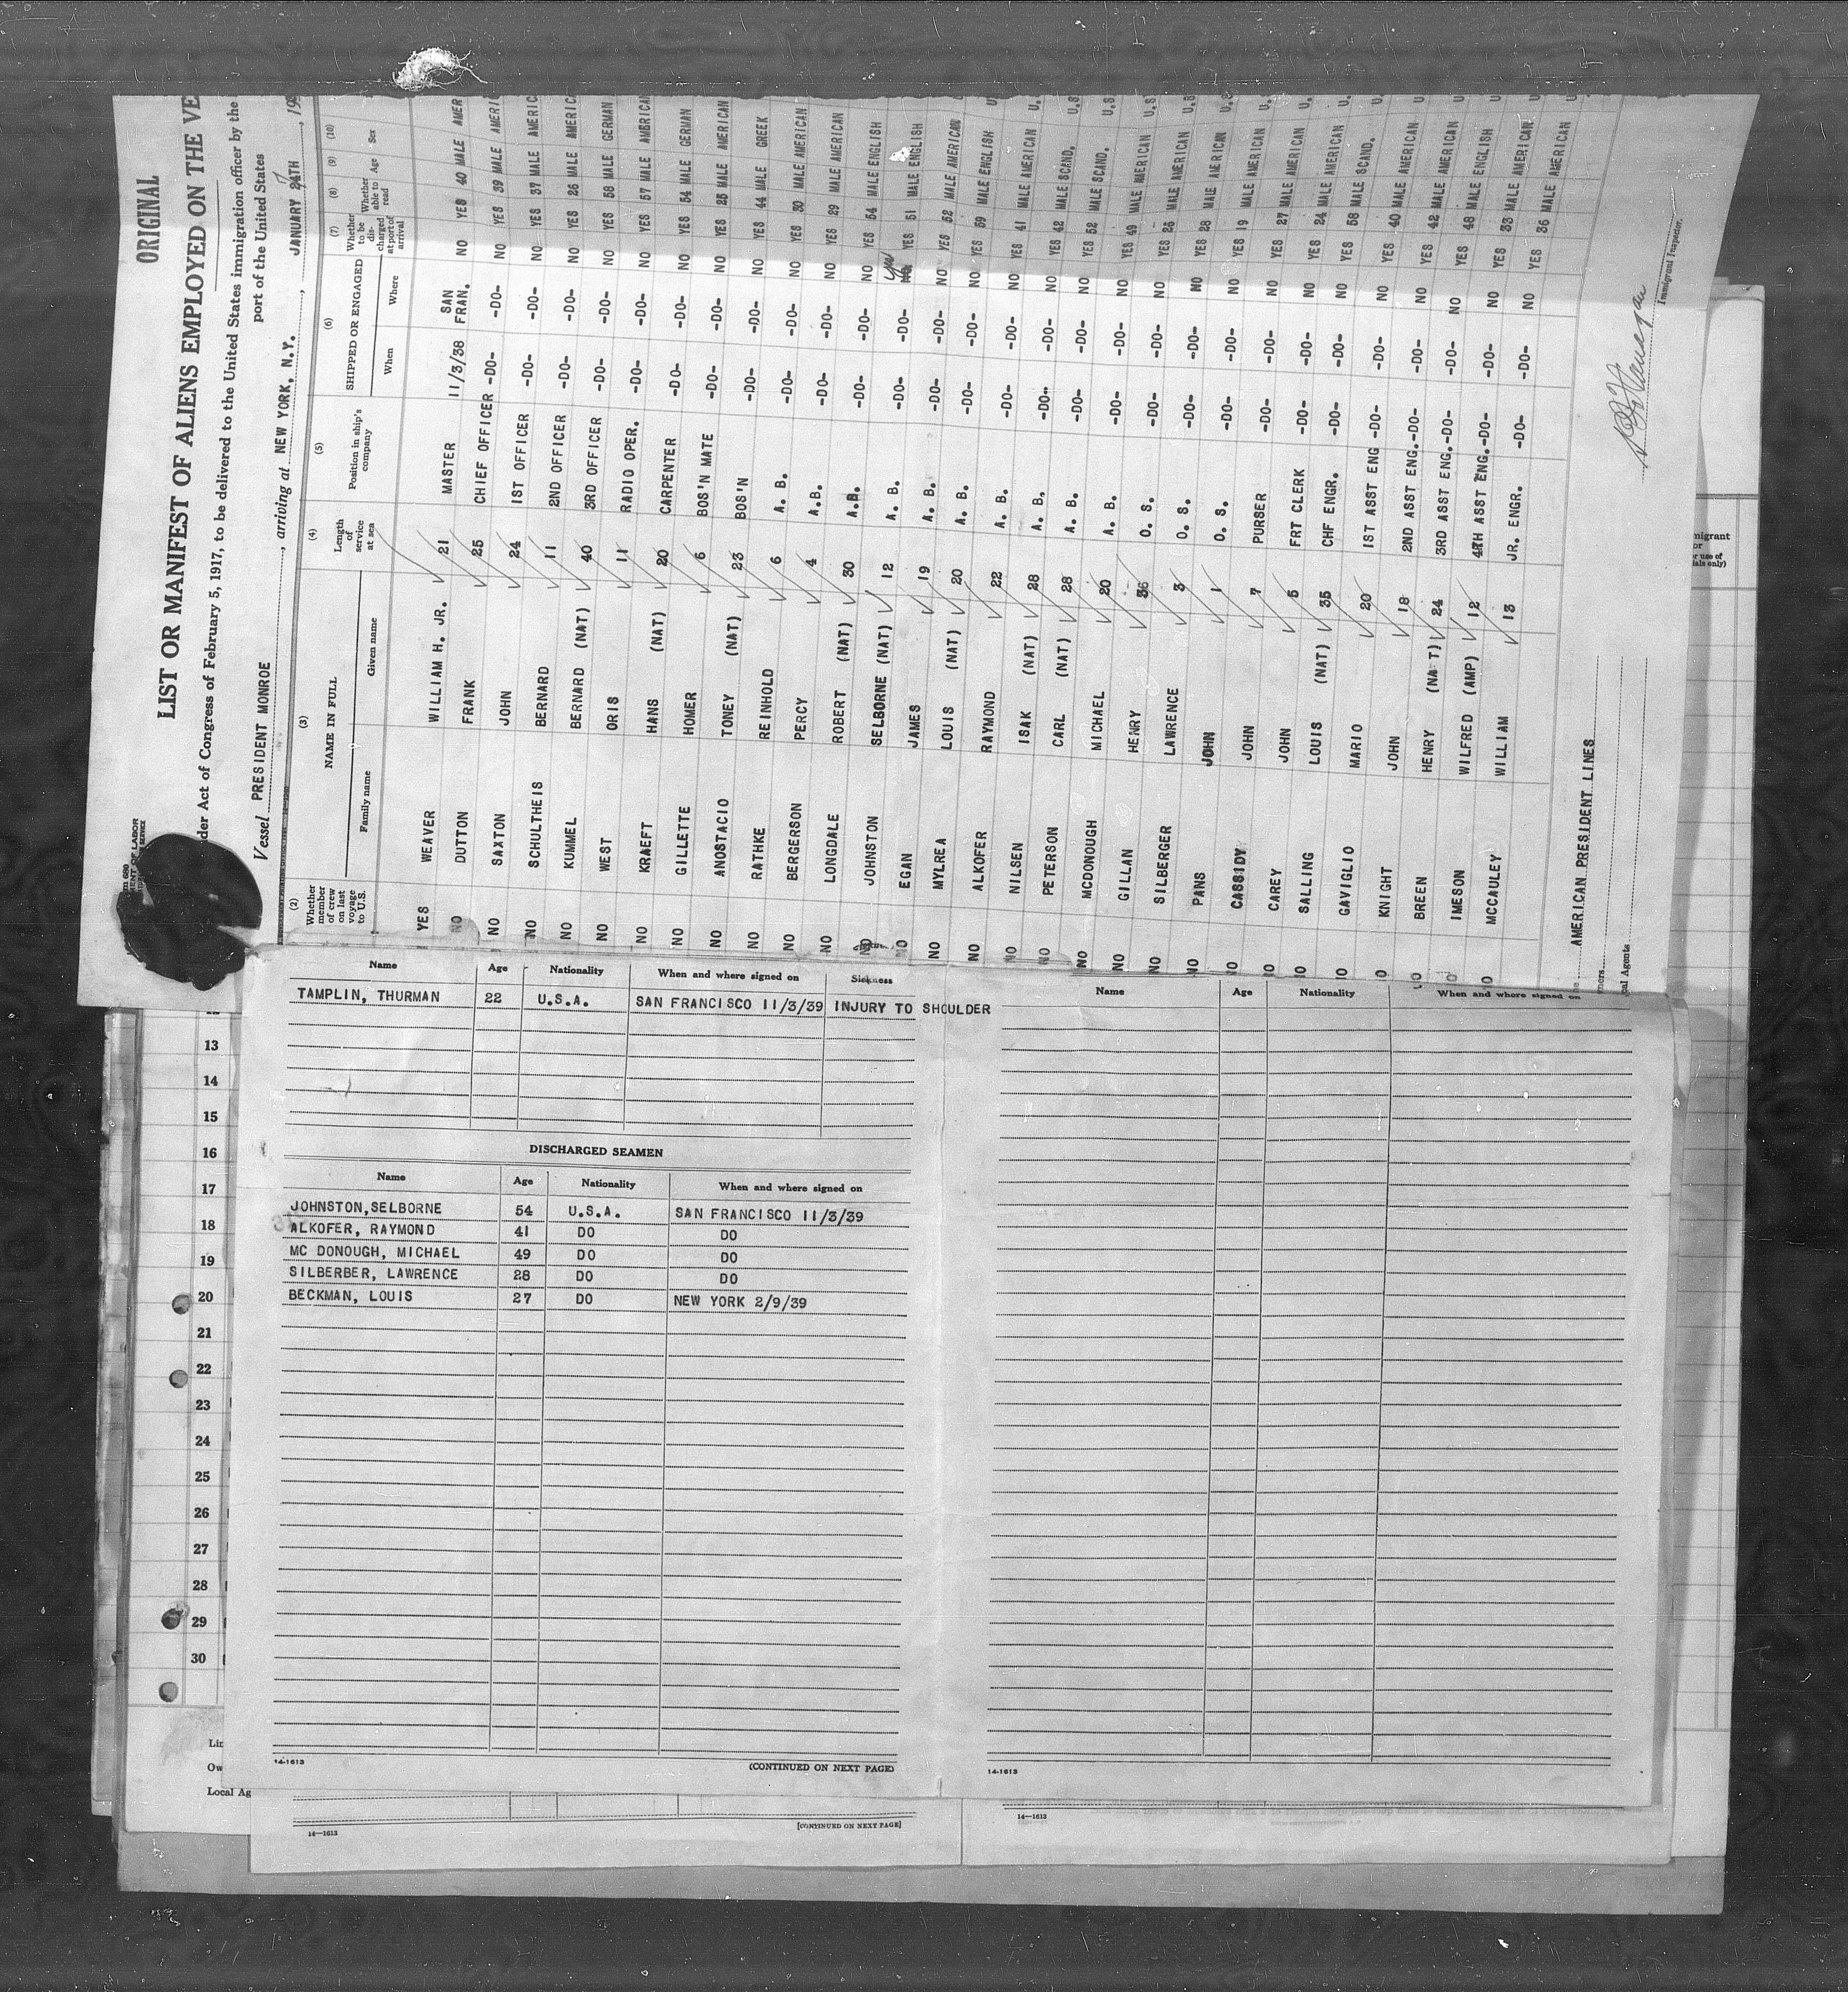 ORIGINAL
LIST OR MANIFEST OF ALIENS EMPLOYED ON THE VE
der Act of Congress of February 5, 1917, to be delivered to the United States immigration officer by the
port of the United States
Vessel PRESIDENT MONROE, arriving at NEW YORK, N.Y., JANUARY 24TH, 193
(2) (3) (4) (5) (6) (7) (8) (9) (10)
Whether member of crew on last voyage to U.S. NAME IN FULL Family name Given name Length of service at sea Position in ship's company SHIPPED OR ENGAGED When Where Whether to be discharged at port of arrival Whether able to read Age Sex
YES WEAVER WILLIAM H. JR. 21 MASTER 11/3/38 SAN FRAN. NO YES 40 MALE AMER
NO DUTTON FRANK 25 CHIEF OFFICER -DO- -DO- NO YES 39 MALE AMERIC
NO SAXTON JOHN 24 1ST OFFICER -DO- -DO- NO YES 37 MALE AMERIC
NO SCHULTHEIS BERNARD 11 2ND OFFICER -DO- -DO- NO YES 26 MALE AMERIC
NO KUMMEL BERNARD (NAT) 40 3RD OFFICER -DO- -DO- NO YES 58 MALE GERMAN
NO WEST ORIS 11 RADIO OPER. -DO- -DO- NO YES 57 MALE AMERICAN
NO KRAEFT HANS (NAT) 20 CARPENTER -DO- -DO- NO YES 54 MALE GERMAN
NO GILLETTE HOMER 6 BOS'N MATE -DO- -DO- NO YES 25 MALE AMERICAN
NO ANOSTACIO TONEY (NAT) 23 BOS'N -DO- -DO- NO YES 44 MALE GREEK
NO RATHKE REINHOLD 6 A. B. -DO- -DO- NO YES 30 MALE AMERICAN
NO BERGERSON PERCY 4 A.B. -DO- -DO- NO YES 29 MALE AMERICAN
NO LONGDALE ROBERT (NAT) 30 A.B. -DO- -DO- NO YES 54 MALE ENGLISH
NO JOHNSTON SELBORNE (NAT) 12 A. B. -DO- -DO- yes YES 51 MALE ENGLISH
NO EGAN JAMES 19 A. B. -DO- -DO- NO YES 52 MALE AMERICAN
NO MYLREA LOUIS (NAT) 20 A. B. -DO- -DO- NO YES 59 MALE ENGLISH U
ALKOFER RAYMOND 22 A. B. -DO- -DO- NO YES 41 MALE AMERICAN U.
NO NILSEN ISAK (NAT) 28 A. B. -DO- -DO- NO YES 42 MALE SCAND. U.S
NO PETERSON CARL (NAT) 28 A. B. -DO- -DO- NO YES 52 MALE SCAND. U.S
NO MCDONOUGH MICHAEL 20 A. B. -DO- -DO- NO YES 49 MALE AMERICAN U.S
NO GILLAN HENRY 36 O. S. -DO- -DO- NO YES 26 MALE AMERICAN U.S
NO SILBERGER LAWRENCE 3 O. S. -DO- -DO- NO YES 28 MALE AMERICAN U.S
NO PANS JOHN 1 O. S. -DO- -DO- NO YES 19 MALE AMERICAN U.
NO CASSIDY JOHN 7 PURSER -DO- -DO- NO YES 27 MALE AMERICAN U.
CAREY JOHN 5 FRT CLERK -DO- -DO- NO YES 24 MALE AMERICAN U.
SALLING LOUIS (NAT) 35 CHF ENGR. -DO- -DO- NO YES 58 MALE SCAND. U.
GAVIGLIO MARIO 20 1ST ASST ENG -DO- -DO- NO YES 40 MALE AMERICAN U
KNIGHT JOHN 18 2ND ASST ENG. -DO- -DO- NO YES 42 MALE AMERICAN U
BREEN HENRY (NAT) 24 3RD ASST ENG. -DO- -DO- NO YES 48 MALE ENGLISH U
IMESON WILFRED (AMP) 12 4TH ASST ENG. -DO- -DO- NO YES 33 MALE AMERICAN U
MCCAULEY WILLIAM 13 JR. ENGR. -DO- -DO- NO YES 36 MALE AMERICAN U
AMERICAN PRESIDENT LINES
Immigrant Inspector.
cal Agents
Name Age Nationality When and where signed on Sickness
TAMPLIN, THURMAN 22 U.S.A. SAN FRANCISCO 11/3/39 INJURY TO SHOULDER
DISCHARGED SEAMEN
Name Age Nationality When and where signed on
JOHNSTON,SELBORNE 54 U.S.A. SAN FRANCISCO 11/3/39
ALKOFER, RAYMOND 41 DO DO
MC DONOUGH, MICHAEL 49 DO DO
SILBERBER, LAWRENCE 28 DO DO
BECKMAN, LOUIS 27 DO NEW YORK 2/9/39
14-1613
(CONTINUED ON NEXT PAGE)
Name Age Nationality When and where signed on
14-1613
13
14
15
16
17
18
19
20
21
22
23
24
25
26
27
28
29
30
Lin
Ow
Local Ag
14—1613
[CONTINUED ON NEXT PAGE]
14—1613
migrant
or
r use of
ials only)